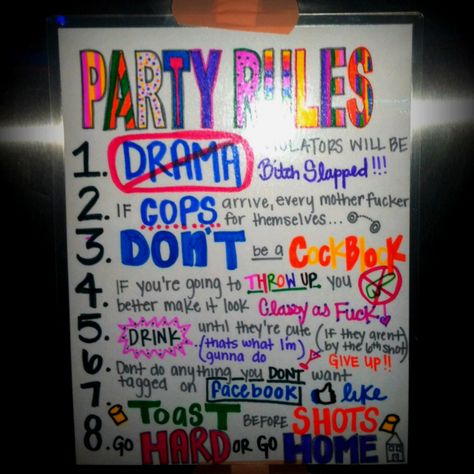 PARTY RULES
1. DRAMA VIOLATORS WILL BE
Bitch Slapped!!!
2. IF COPS arrive, every mother fucker
for themselves...
3. DON'T be a COCKBLOCK
4. IF YOU're going to THROW UP, you
better make it look Classy as Fuck!
5. DRINK until they're cute (if they aren't
(thats what I'm by the 6th shot)
gunna do) GIVE UP!!
6. Dont do anything you DONT want
tagged on facebook like
7. TOAST BEFORE SHOTS
8. GO HARD OR GO HOME